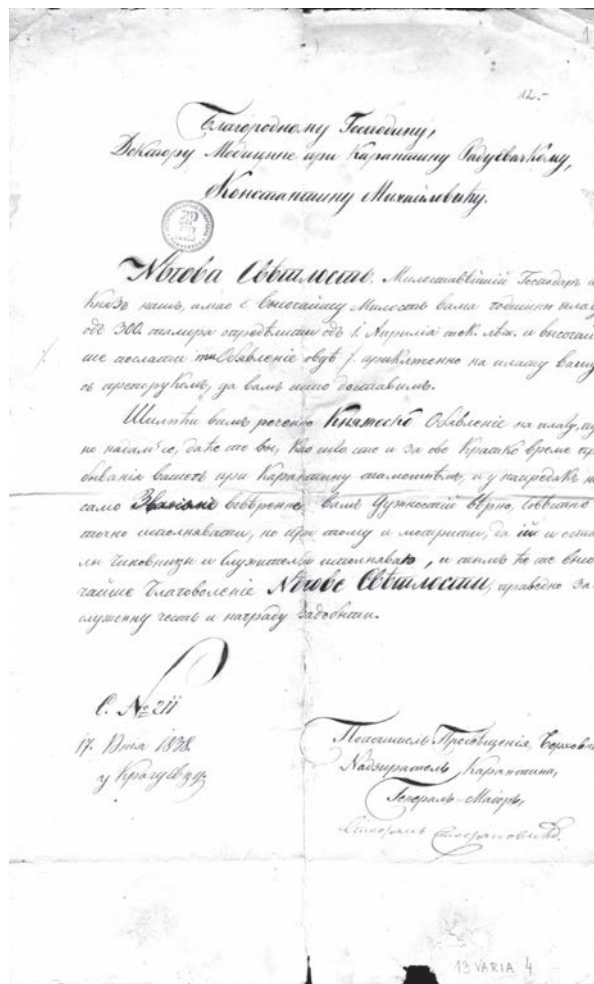 12.-
Благородному Господину,
Доктору Медицине при Карантину Радуєвачкому,
Константину Михаиловићу.
Нѣгова Свѣтлость, Милостивѣйшій Господарь и
Князь нашъ, имао є высочайшу Милость вама годишню плаћу
одъ 300. талира опредѣлити одъ 1. Априлія тек. лѣта. и высочай
ше послати Обявленіе овде приключенно на плаћу вашу
съ препорукомъ, да вамъ исто доставимъ.
Шилюћи вамъ речено Княжеско Обявленіе на плаћу,
но надамъ се, да ћете вы, као што сте и за ово кратко време пре
быванія вашегъ при Карантину тамошнѣмъ, и у напредакъ не
само ввѣренне вамъ Дужности вѣрно, совѣстно
точно исполнявати, но при тому и мотрити, да ій и оста
ли Чиновницы и Служительи исполняваю, и тимъ ће те высо
чайше Благоволеніе Нѣгове Свѣтлости, праведно за
служену честь и награду задобыти.
С. № 211
17. 1838.
у Крагуєвцу.
Попечитель Просвѣщенія, Верховн
Надзиратель Карантина,
Генералъ-Маіоръ,
Стефанъ Стефановићъ
13 VARIA 4